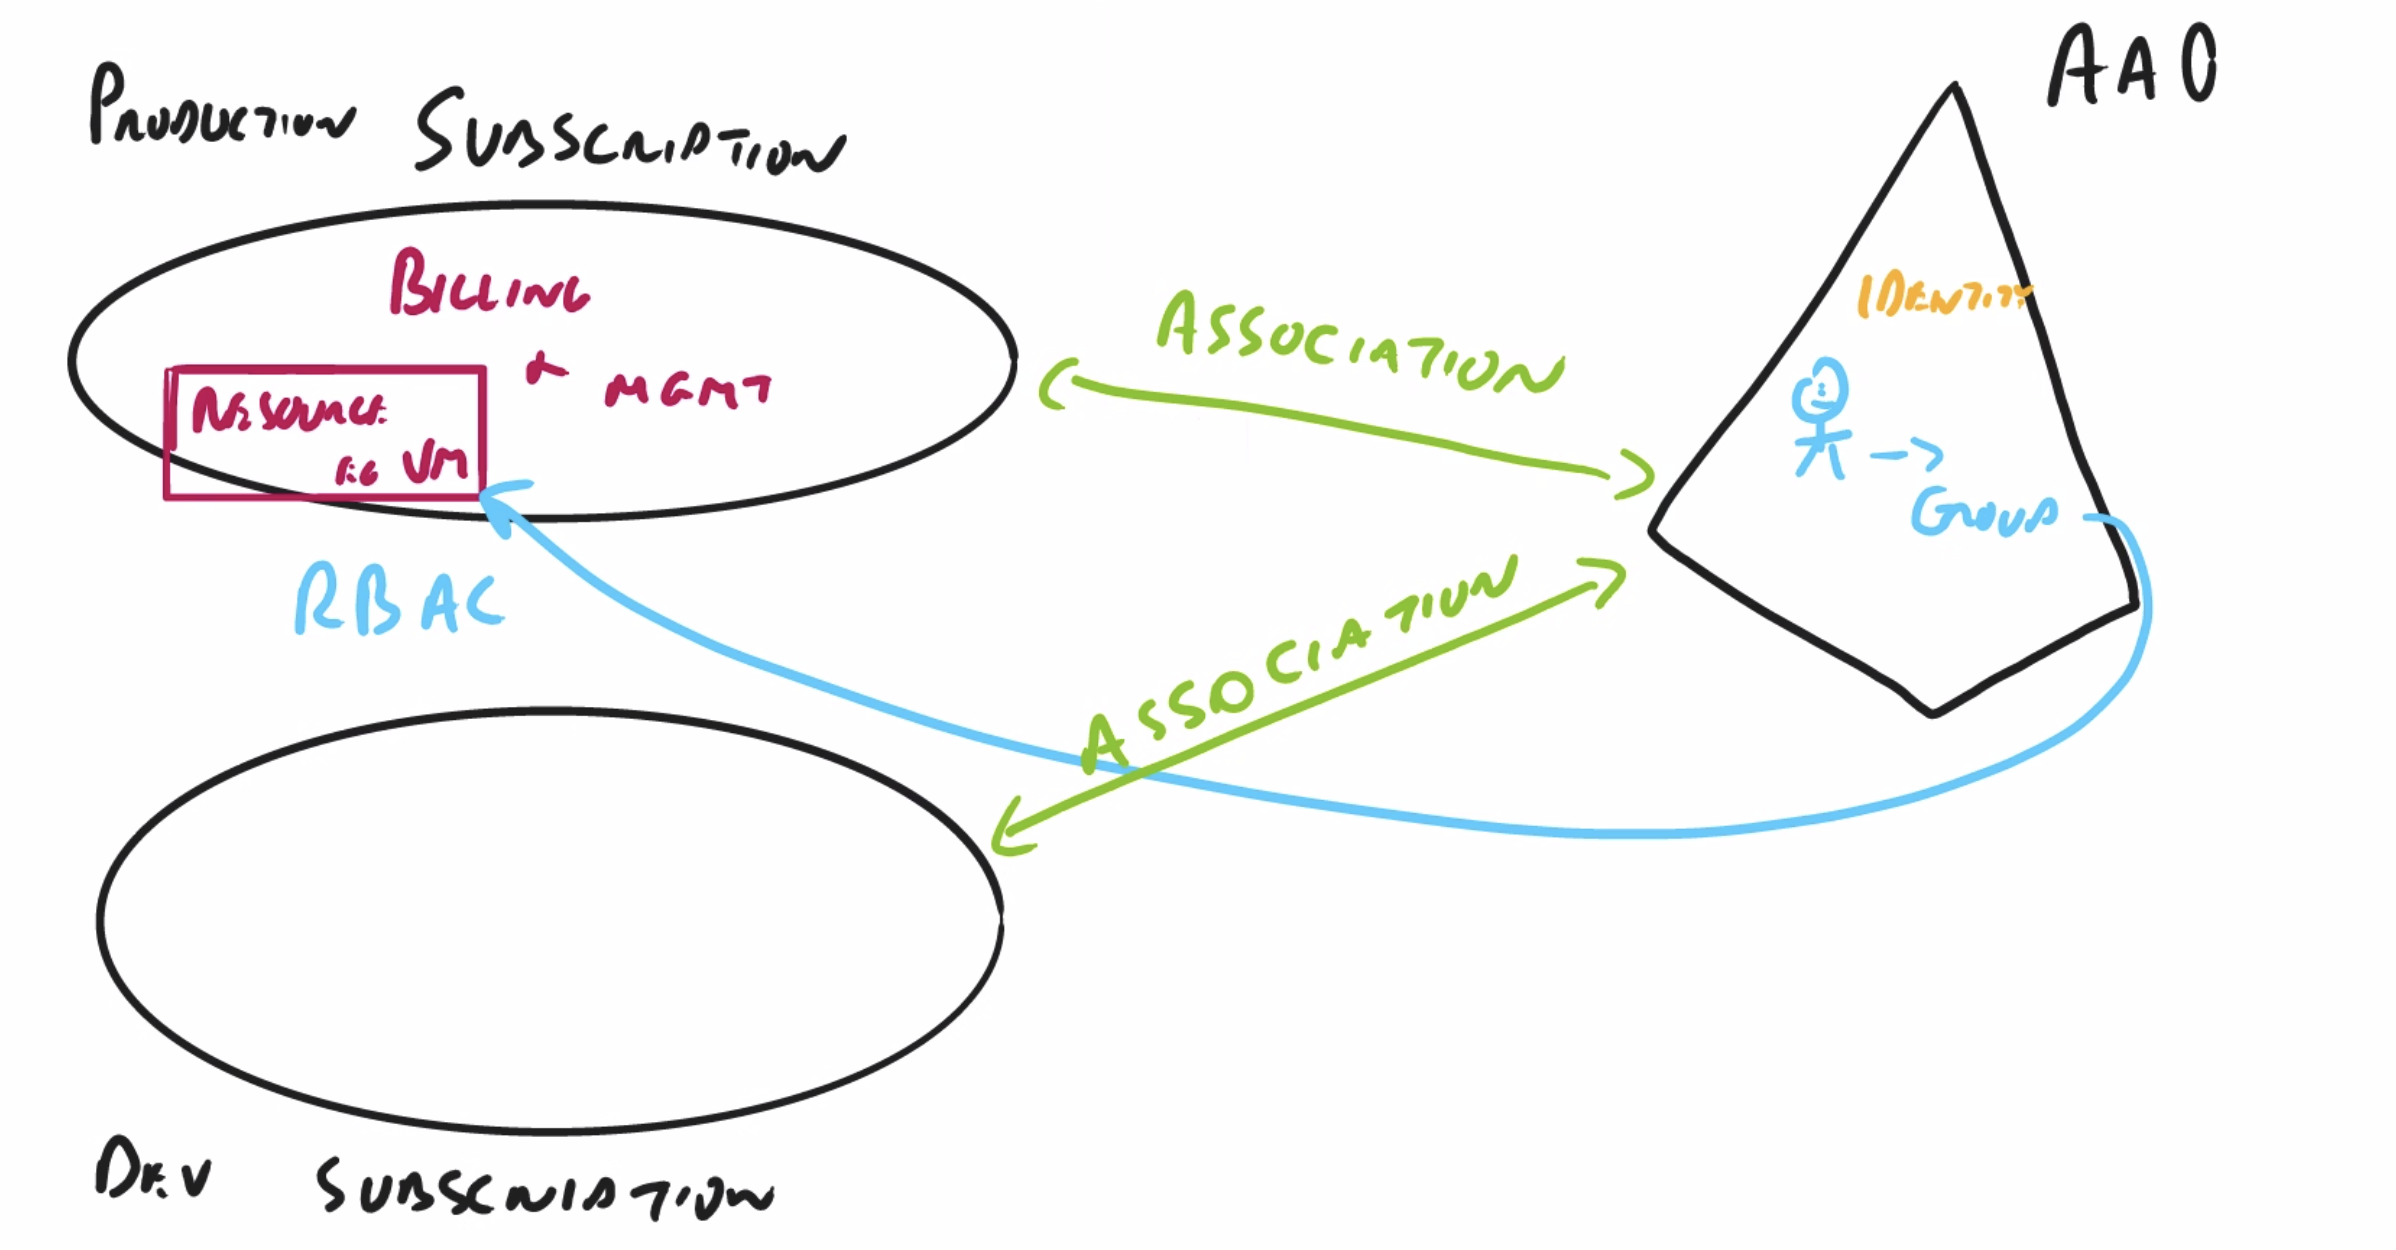 PRODUCTION SUBSCRIPTION
AAD
BILLING
+ MGMT
RESOURCE
EG VM
ASSOCIATION
IDENTITY
→ GROUP
RBAC
ASSOCIATION
DEV SUBSCRIPTION